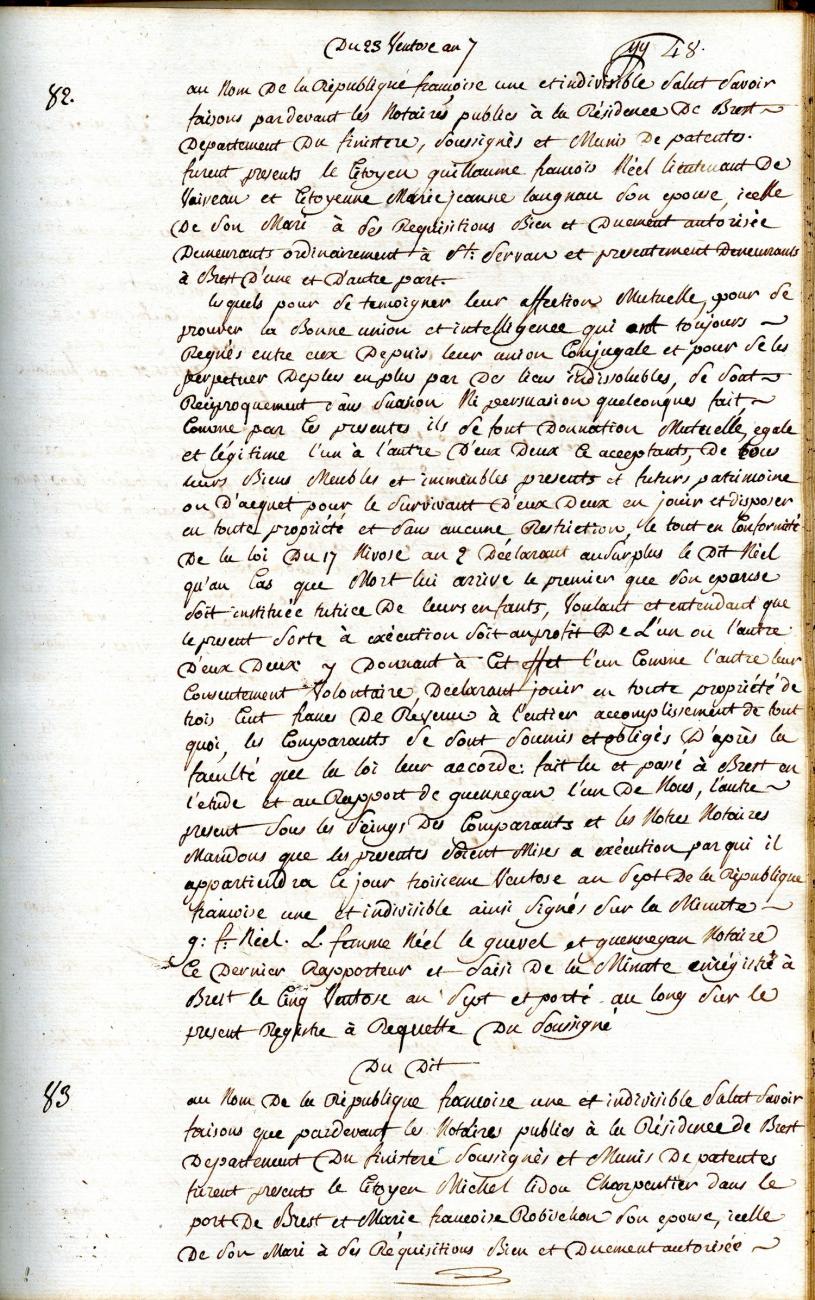 Du 23 Ventose an 7
48.
82.
au Nom De la République françoise une et indivisible Salut Savoir
faisons pardevant les Notaires publics à la Résidence De Brest
Departement Du finistere, Soussignés et Munis De patentes.
furent presents le Citoyen guillaume francois Néel lieutenant De
Vaiseau et Citoyenne Marie jeanne laugnau Son epouse, icelle
De Son Mari à Ses Requisitions Bien et Duement autorisée
Demeurants ordinairement à St. Servan et presentement Demeurants
à Brest D'une et D'autre part.
lesquels pour Se temoigner leur affection Mutuelle, pour Se
prouver la Bonne union et intelligence qui ont toujours
Regnés entre eux Depuis leur union Conjugale et pour Se les
perpetuer Deplus enplus par Des liens indissolubles, Se Sont
Réciproquement Sans Suasion Ni persuasion quelconques fait,
Comme par Ces presentes ils Se font Donnation Mutuelle, egale
et légitime l'un à l'autre D'eux Deux Ce acceptants, De tous
leurs Biens Meubles et immeubles presents et futurs patrimoine
ou D'acquet pour le Survivant D'eux Deux en jouir et disposer
en toute propriété et Sans aucune Restriction, le tout en Conformité
De la loi Du 17 Nivose an 2 Déclarant auSurplus le Dit Néel
qu'au Cas que Mort lui arrive le premier que Son epouse
Soit instituée tutrice De leurs enfants, Voulant et entendant que
le present Sorte à exécution Soit auprofit De L'un ou l'autre
D'eux Deux y Donnant à Cet effet l'un Comme l'autre leur
Consentement Volontaire, Déclarant jouir en toute propriété de
trois Cent francs De Révenu à l'entier accomplissement de tout
quoi, les Comparants Se Sont Soumis et obligés D'après la
faculté que la loi leur accorde: fait lu et passé à Brest en
l'etude et au Rapport de guennegan l'un De Nous, l'autre
present Sous les Seings Des Comparants et les Notres Notaires
Mandons que les presentes Soient Mises a exécution par qui il
appartiendra Ce jour troisieme Ventose an Sept De la République
francoise une et indivisible ainsi Signés Sur la Minute
g: f. Néel. L. fanme Néel le guevel et guennegan Notaire
Ce Dernier Rapporteur et Saisi De la Minute enrégistré à
Brest le Cinq Ventose an Sept et porté au long Sur le
present Registre à Requette Du Soussigné
Du Dit
83
au Nom De la République francoise une et indivisible Salut Savoir
faisons que pardevant les Notaires publics à la Résidence de Brest
Departement Du finisteré Soussignés et Munis De patentes
furent presents le Citoyen Michel lidou Charpentier dans le
port De Brest et Marie francoise Robischon Son epouse, icelle
De Son Mari à Ses Réquisitions Bien et Duement autorisée